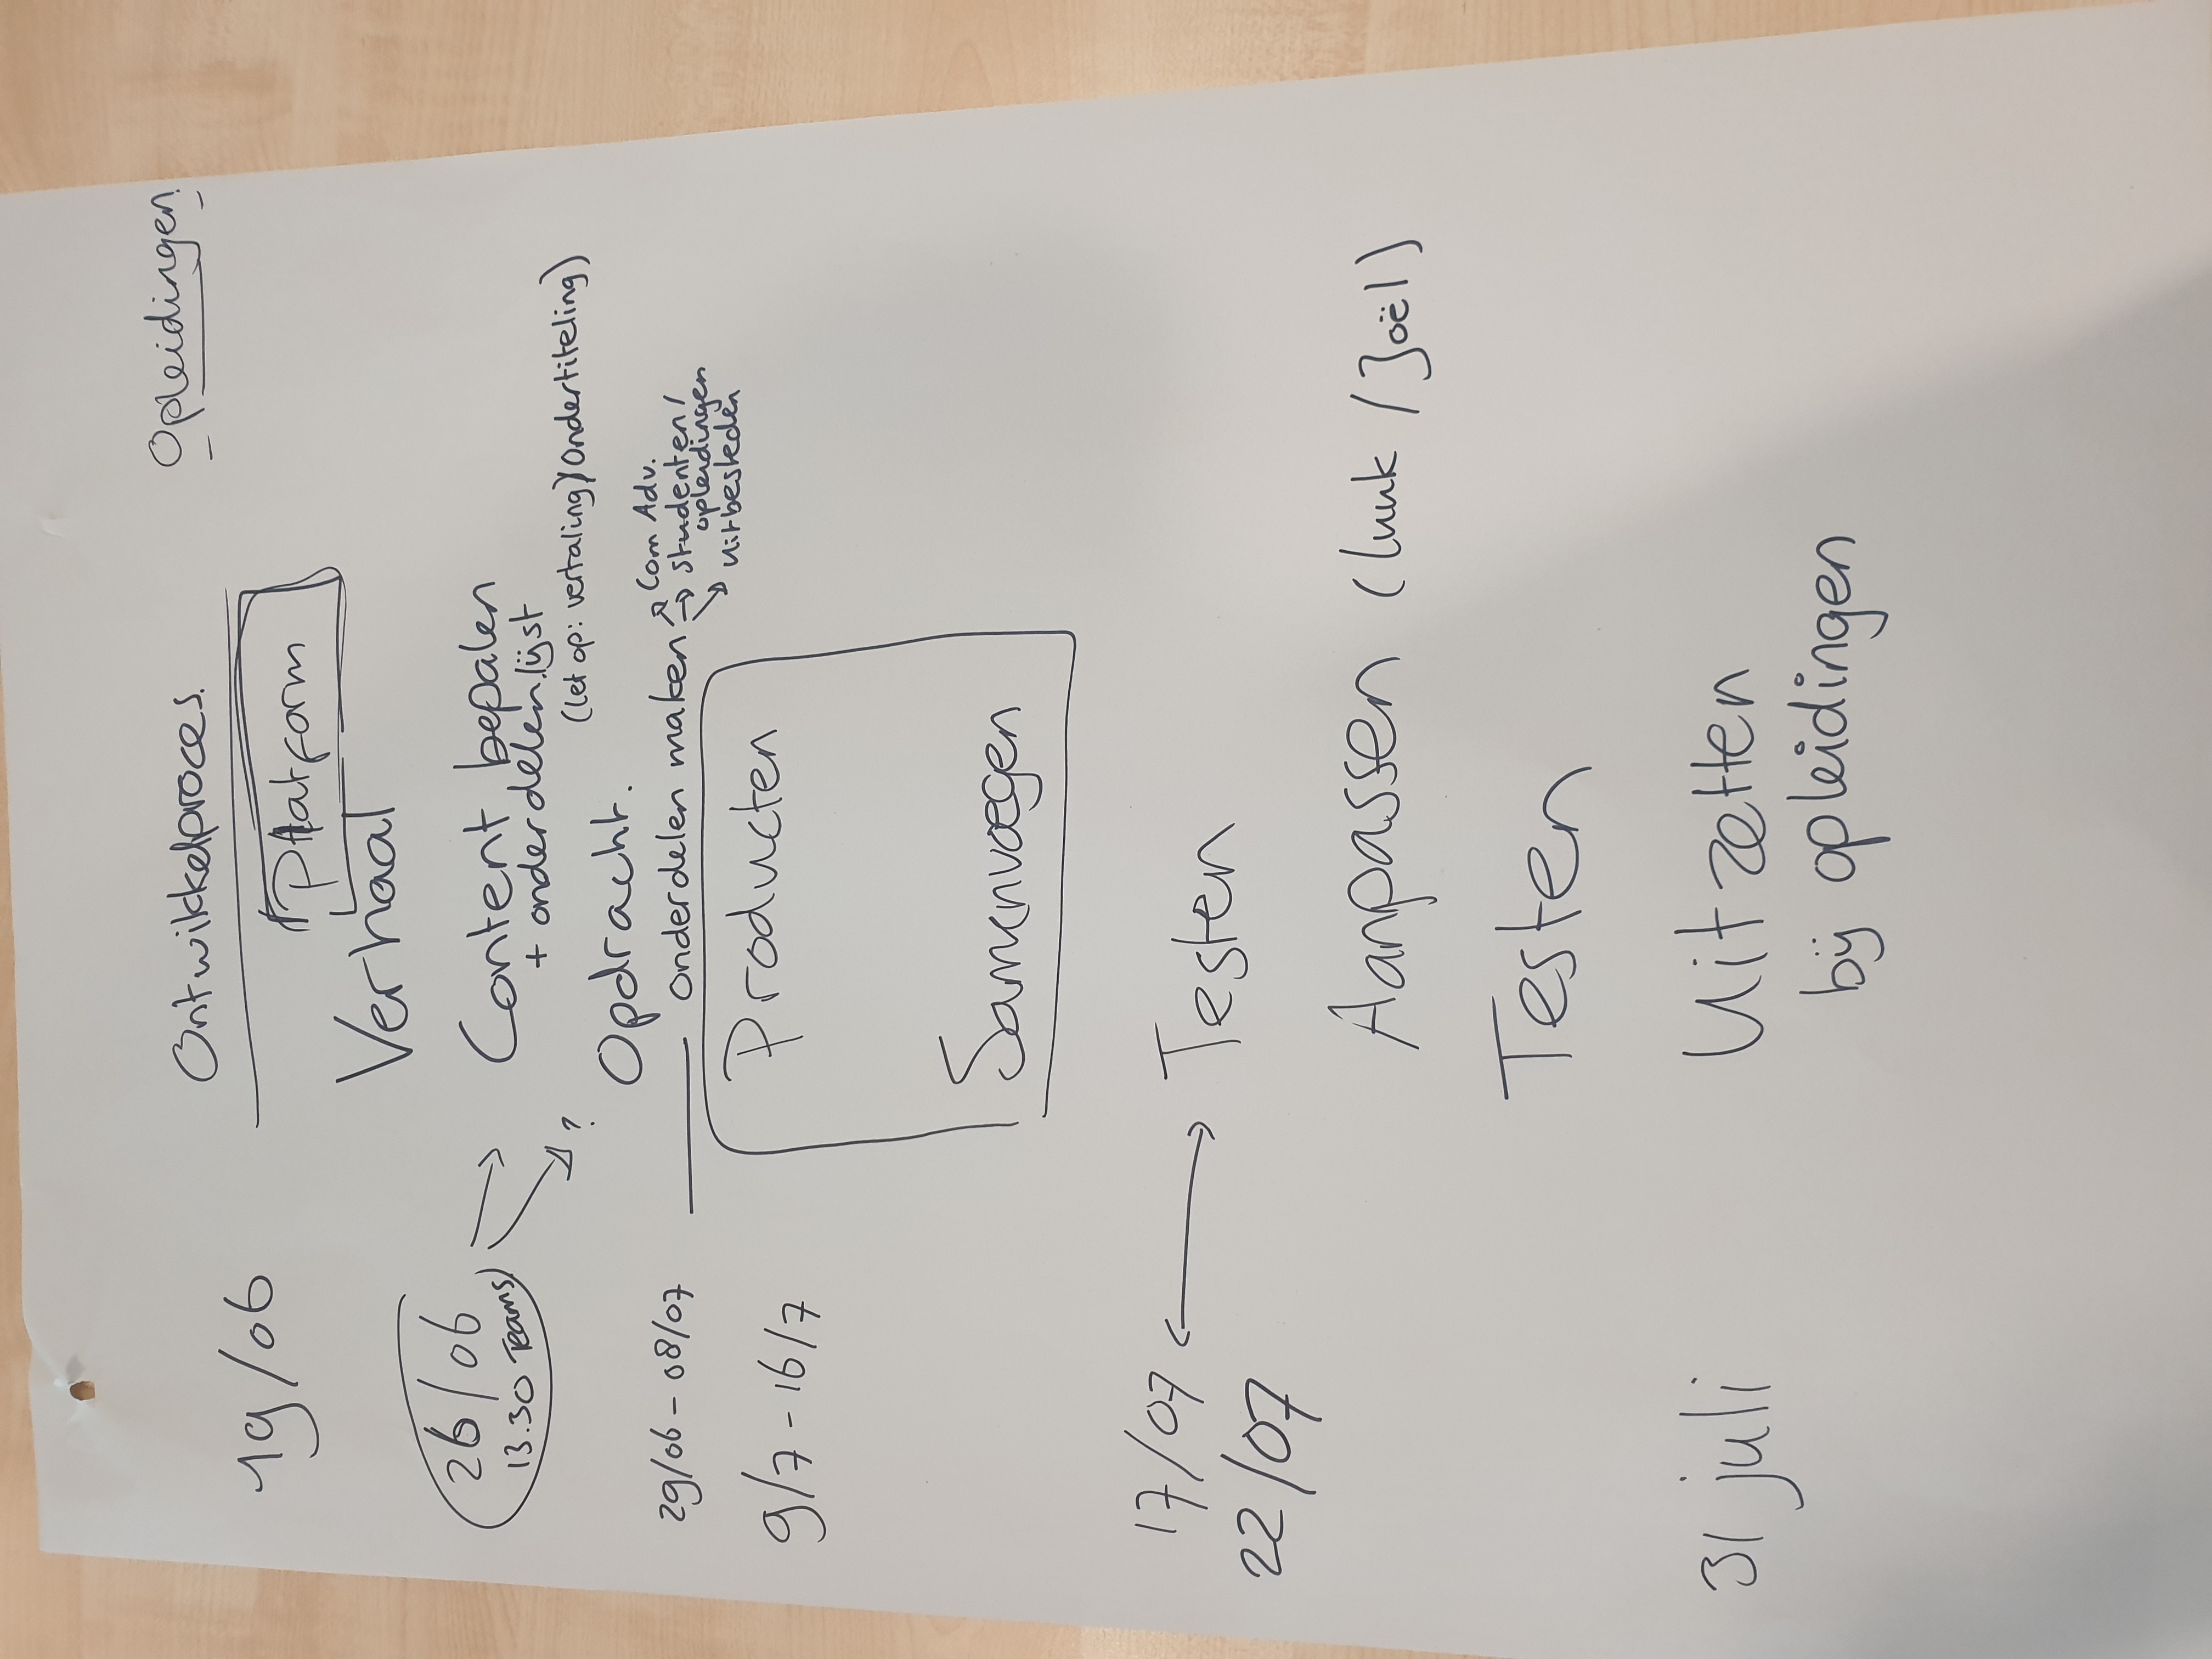 Ontwikkelproces.
Opleidingen
19/06
Platform
Verhaal
26/06
13.30 Teams
Content bepalen
+ onderdelenlijst
(let op: vertaling/Ondertiteling)
?
Opdracht.
29/06 - 08/07
onderdelen maken
Com Adv.
studenten/
opleidingen
uitbesteden
Producten
9/7 - 16/7
Samenvoegen
17/07
Testen
22/07
Aanpassen (Luuk / Joël)
Testen
31 juli
Uitzetten
bij opleidingen